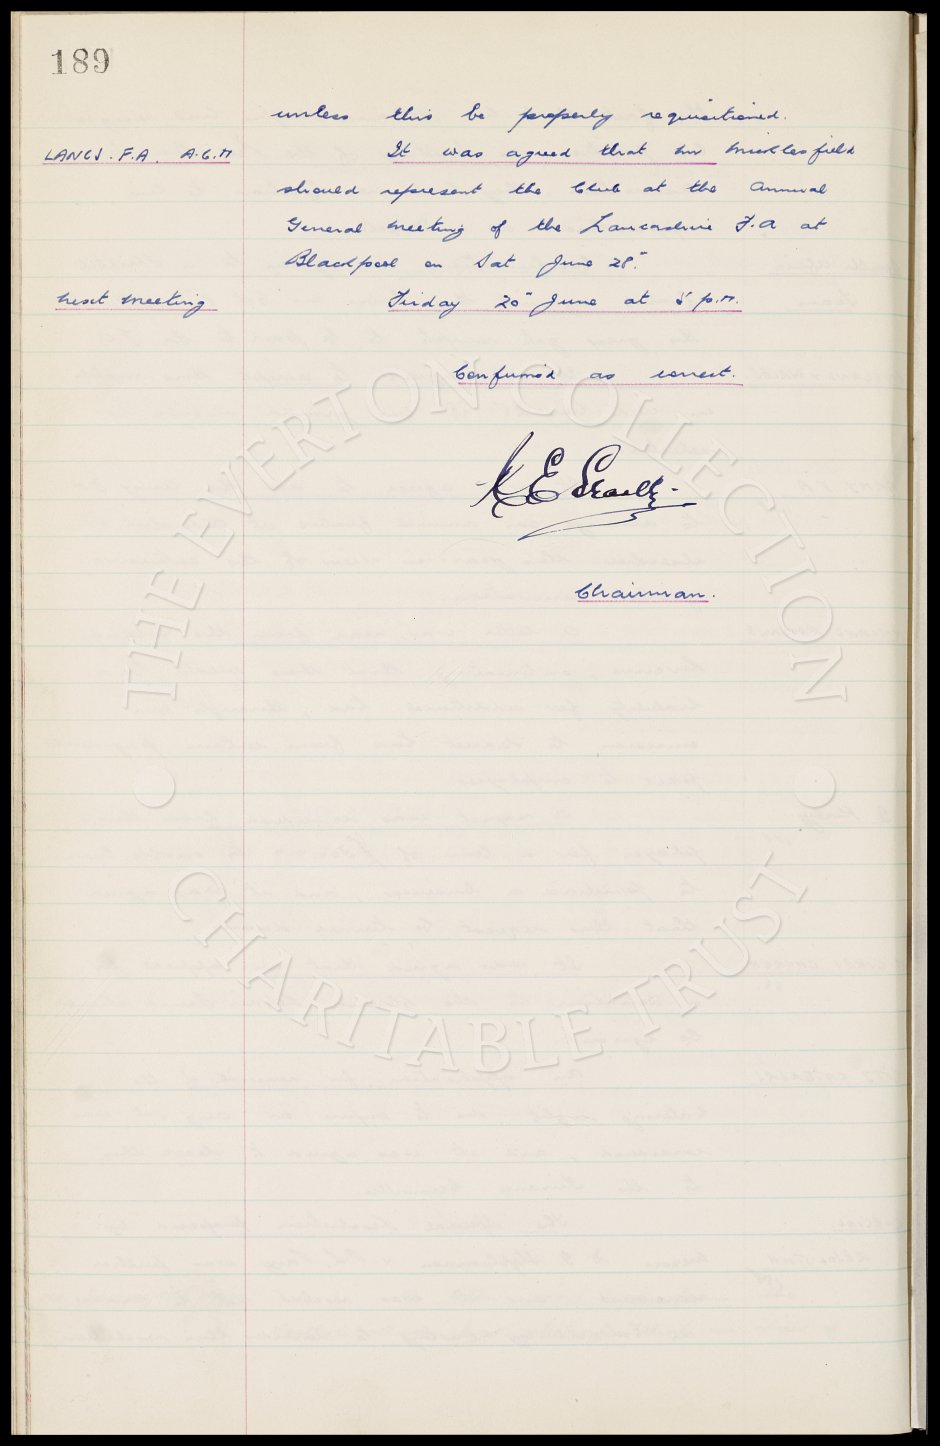 189
unless this be properly requisitioned.
LANCS. F.A. A.G.M It was agreed that Mr Micklesfield
should represent the Club at the Annual
General Meeting of the Lancashire F.A at
Blackpool on Sat June 28"
Next Meeting Friday 20" June at 5 p.m.
Confirmed as correct.
E
Chairman.
THE EVERTON COLLECTION
CHARITABLE TRUST